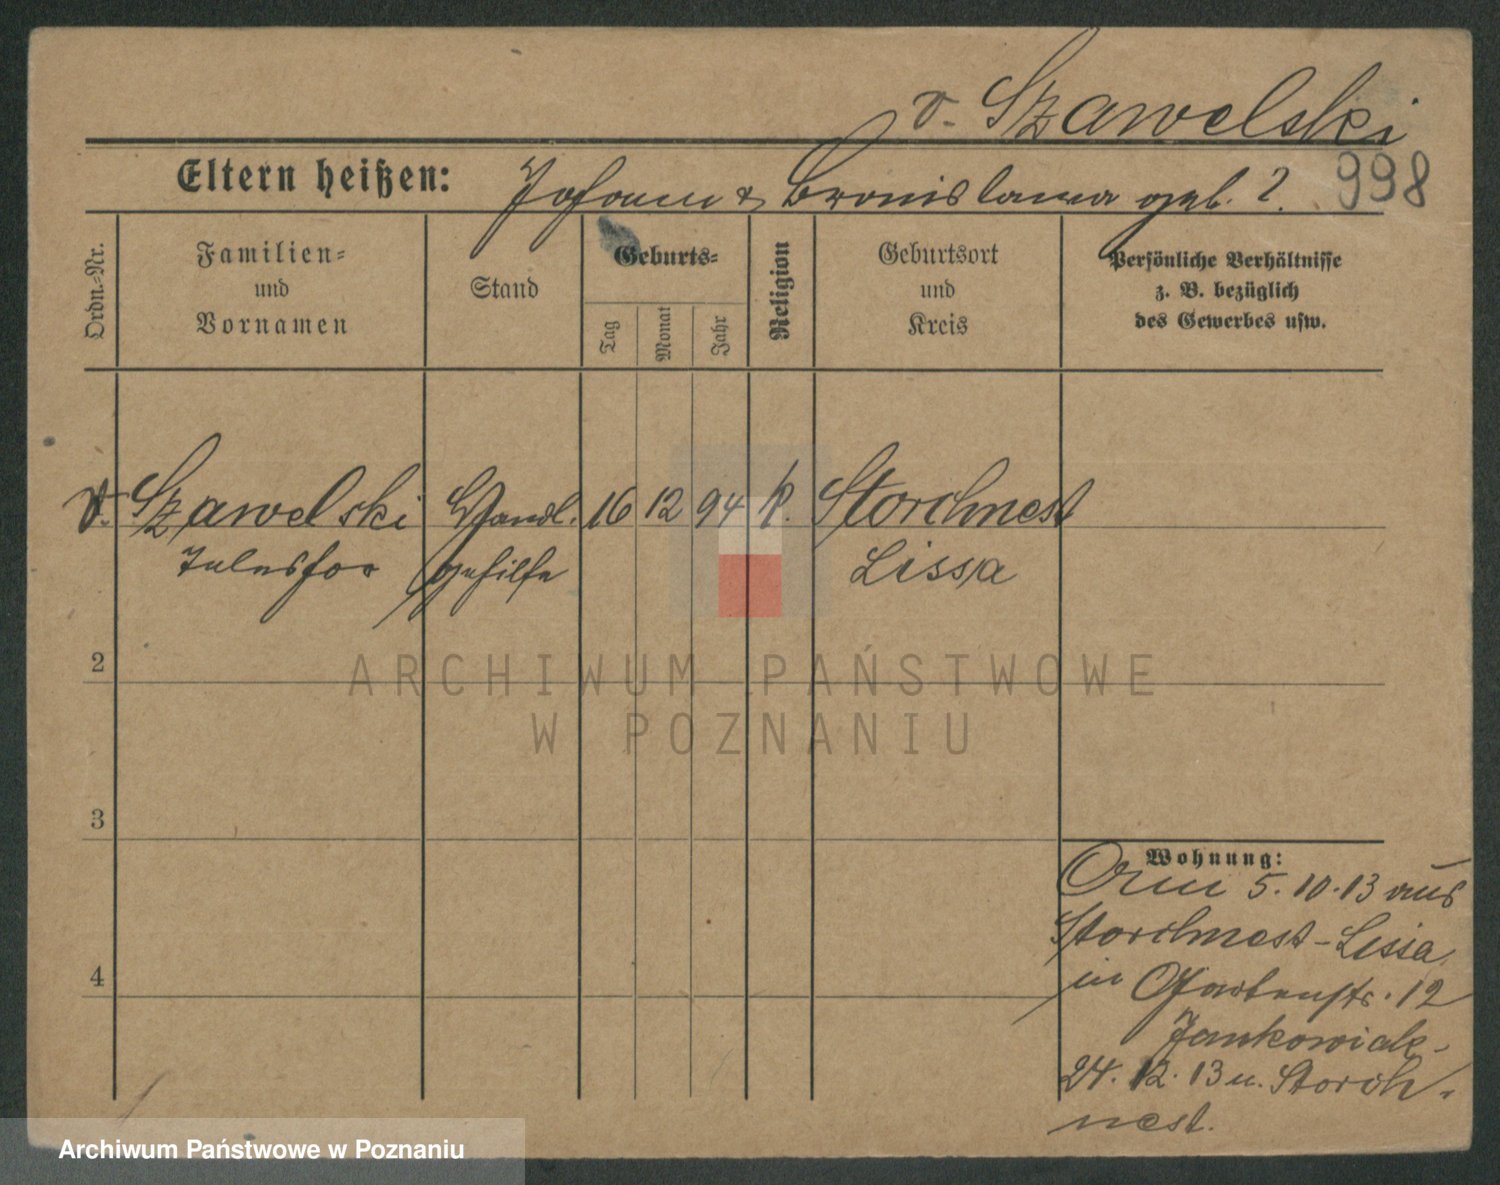 v. Szawelski
Eltern heißen: Johann & Bronislawa geb. ?. 998
Ordn.-Nr.
Familien-
und
Vornamen
Stand
Geburts-
Tag
Monat
Jahr
Religion
Geburtsort
und
Kreis
Persönliche Verhältnisse
z. B. bezüglich
des Gewerbes usw.
v. Szawelski Handl. 16 12 94 k. Storchnest
gehilfe Lissa
2
3
4
Wohnung:
5.10.13 aus
Storchnest-Lissa
in Gartenstr. 12
Jankowiak
24.12.13 n. Storch-
nest.
ARCHIWUM PAŃSTWOWE
W POZNANIU
Archiwum Państwowe w Poznaniu